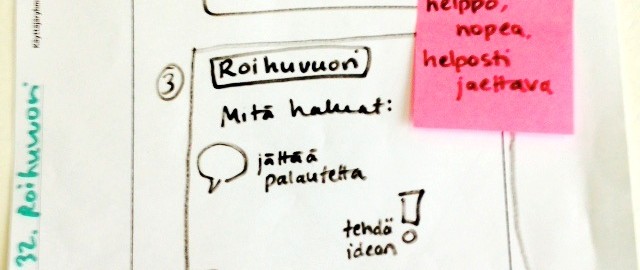 helppo,
nopea,
helposti
jaettava
3
Roihuvuori
Mitä haluat:
jättää
palautetta
tehdä
idean
32. Roihuvuori